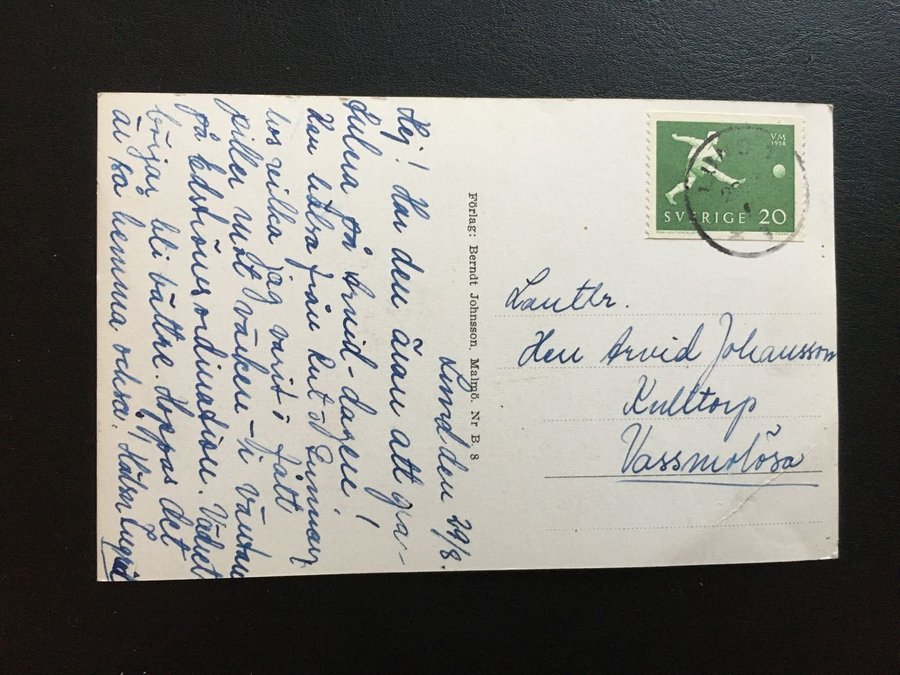 Lund den 29/8.
Hej! Har den äran att gra-
tulera på Arvid-dagen!
Kan hälsa från Rut o Gunnar,
hos vilka jag varit i
piller mot värken - i väntan
på Edshöus ordination. Vädret
börjar bli bättre. Hoppas det
är så hemma också. Hälsn Ingrid
Förlag: Berndt Johnsson, Malmö. Nr B 8
VM
1958
SVERIGE 20
Lantbr.
Herr Arvid Johansson
Kulltorp
Vassmolösa